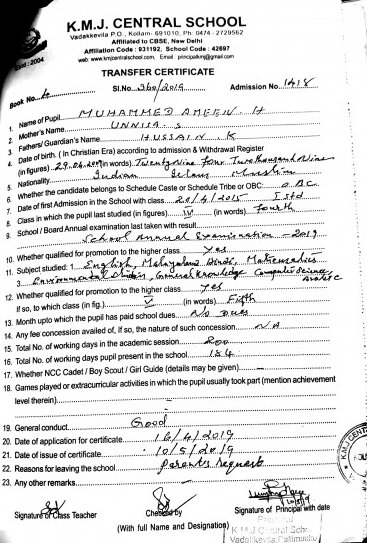 K.M.J. CENTRAL SCHOOL
Vadakkevila P.O., Kollam- 691010, Ph: 0474 - 2729562
Affiliated to CBSE, New Delhi
Affiliation Code : 931192, School Code : 42697
web: www.kmjcentralschool.com, Email : principalkmj@gmail.com
2004
TRANSFER CERTIFICATE
Book No. 4 Sl.No. 360/2019 Admission No. 1418
1. Name of Pupil MUHAMMED AMEEN. H
2. Mother's Name UNNISA. S
3. Fathers/ Guardian's Name HUSSAIN. K
4. Date of birth. ( In Christian Era) according to admission & Withdrawal Register
(in figures) 29.04.2009 (in words) Twenty Nine Four Two thousand Nine
5. Nationality Indian Islam Muslim
6. Whether the candidate belongs to Schedule Caste or Schedule Tribe or OBC: OBC
7. Date of first Admission in the School with class 20/4/2015 I std
8. Class in which the pupil last studied (in figures) IV (in words) fourth
9. School / Board Annual examination last taken with result
School Annual Examination - 2019
10. Whether qualified for promotion to the higher class Yes
11. Subject studied: 1 English, Malayalam, Hindi, Mathematics
3 Environmental Studies, General Knowledge Computer Science Arabic
12. Whether qualified for promotion to the higher class Yes
If so, to which class (in fig.) V (in words) Fifth
13. Month upto which the pupil has paid school dues No Dues
14. Any fee concession availed of, If so, the nature of such concession NA
15. Total No. of working days in the academic session 200
16. Total No. of working days pupil present in the school 184
17. Whether NCC Cadet / Boy Scout / Girl Guide (details may be given) -
18. Games played or extracurricular activities in which the pupil usually took part (mention achievement
level therein) -
19. General conduct Good
20. Date of application for certificate 16/4/2019
21. Date of issue of certificate 10/5/2019
22. Reasons for leaving the school Parents request
23. Any other remarks
Signature of Class Teacher Checked by Signature of Principal with date
(With full Name and Designation)
K M J Central School
Vadakkevila, Pallimukku